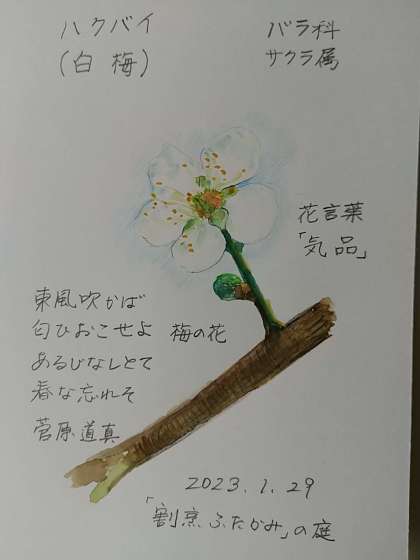 ハクバイ
(白梅)
バラ科
サクラ属
花言葉
「気品」
東風吹かば
匂ひおこせよ 梅の花
あるじなしとて
春な忘れそ
菅原道真
2023.1.29
「割烹ふたかみ」の庭